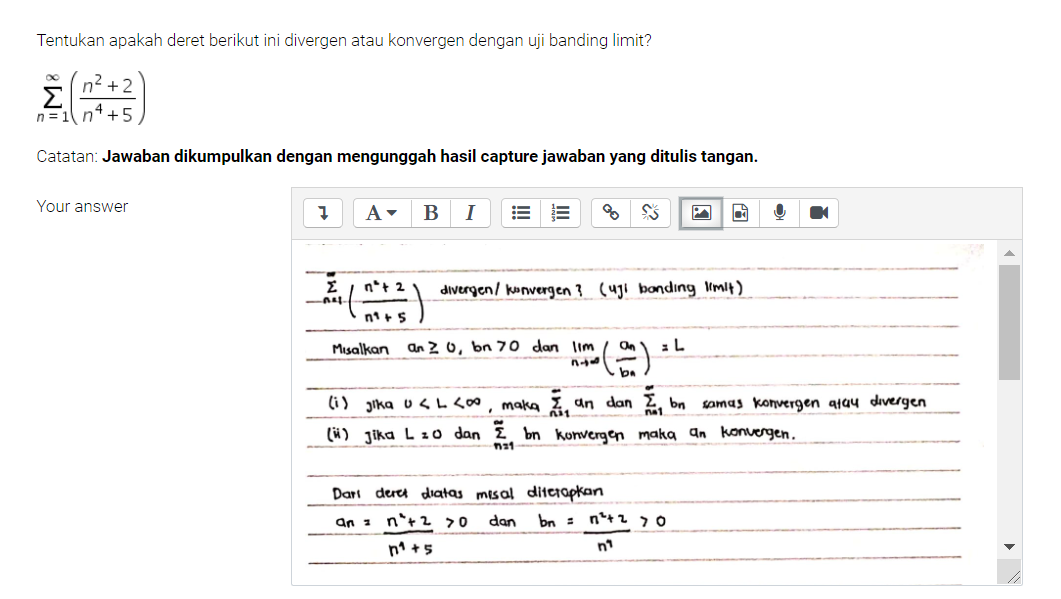 Tentukan apakah deret berikut ini divergen atau konvergen dengan uji banding limit?
∞ Σ n = 1 ( n² + 2 / n⁴ + 5 )
Catatan: Jawaban dikumpulkan dengan mengunggah hasil capture jawaban yang ditulis tangan.
Your answer
A B I
∞ Σ n=1 ( n² + 2 / n⁴ + 5 ) divergen / konvergen ? (uji banding limit)
Misalkan an ≥ 0, bn > 0 dan lim n→∞ ( an / bn ) = L
(i) jika 0 < L < ∞, maka ∞ Σ n=1 an dan ∞ Σ n=1 bn samas konvergen atau divergen
(ii) Jika L = 0 dan ∞ Σ n=1 bn konvergen maka an konvergen.
Dari deret diatas misal diterapkan
an = n² + 2 / n⁴ + 5 > 0 dan bn = n² + 2 / n⁴ > 0